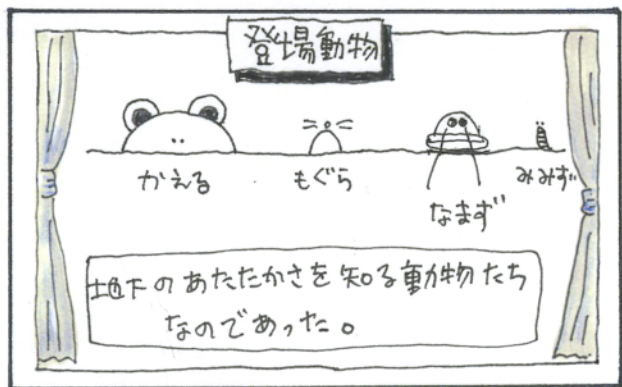 登場動物
かえる
もぐら
なまず
みみず
地下のあたたかさを知る動物たち
なのであった。